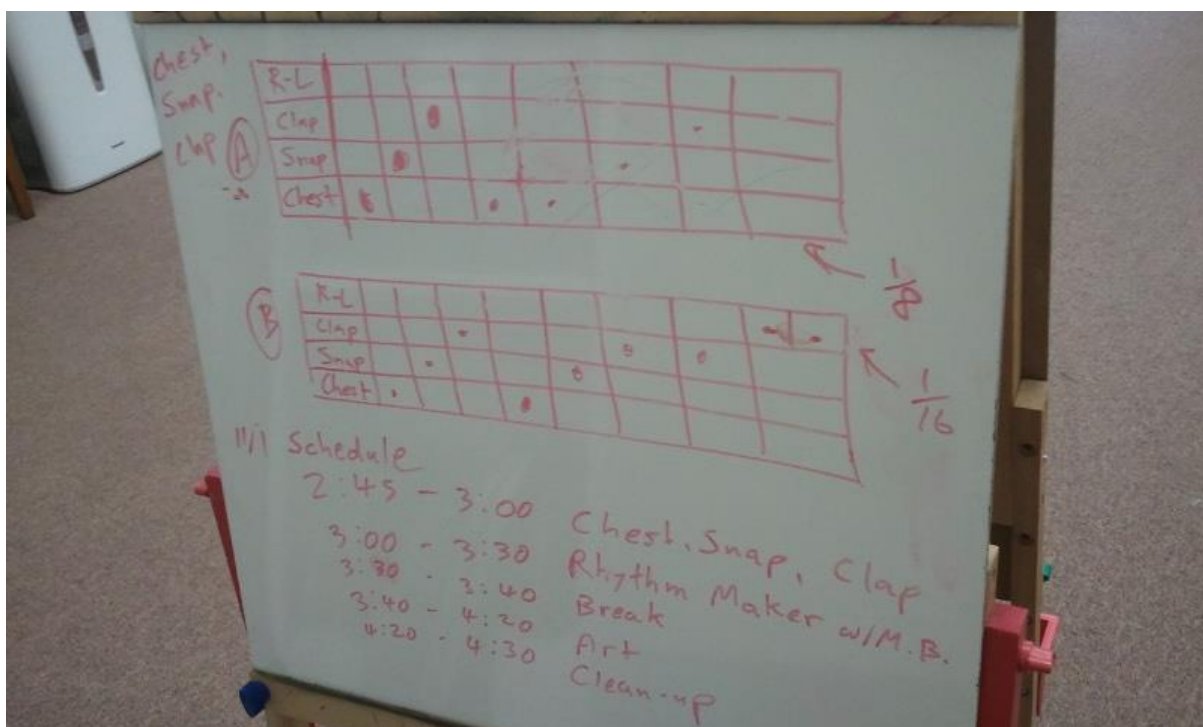 Chest,
Snap.
Clap
A
R-L
Clap
Snap
Chest
1/8
B
R-L
Clap
Snap
Chest
1/16
11/1 Schedule
2:45 - 3:00 Chest, Snap, Clap
3:00 - 3:30 Rhythm Maker w/M.B.
3:30 - 3:40 Break
3:40 - 4:20 Art
4:20 - 4:30 Clean-up